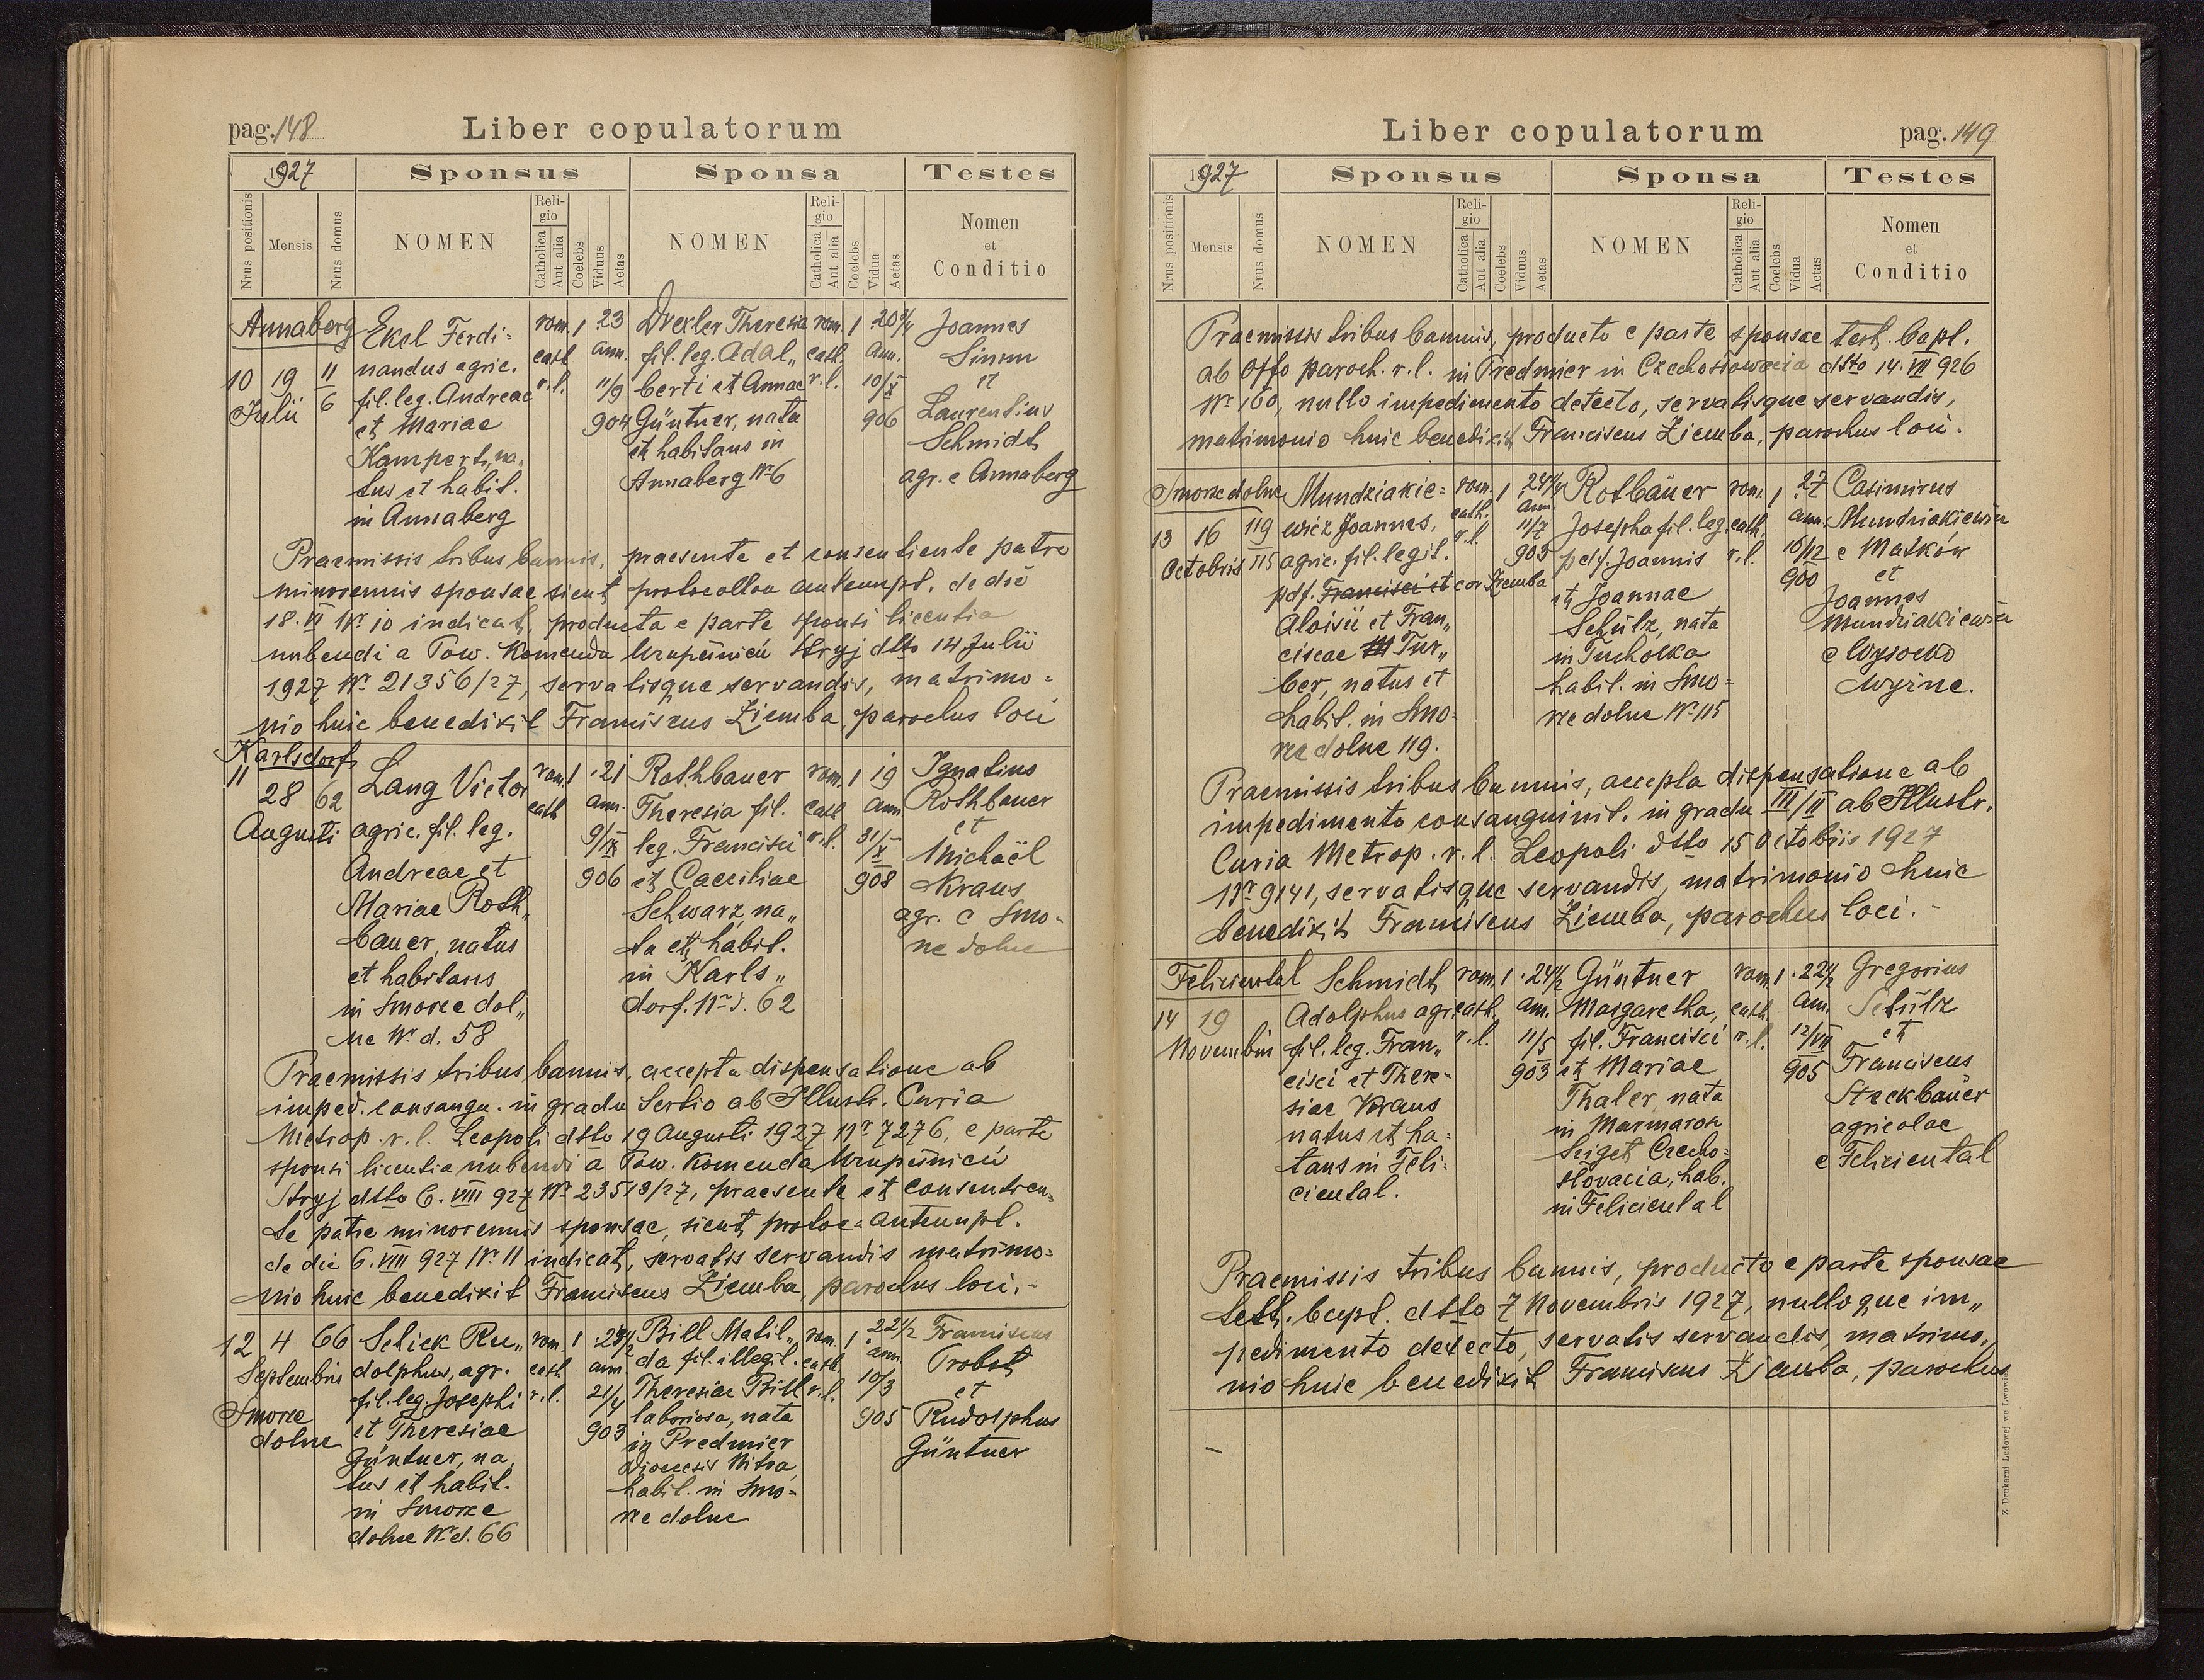 pag. 148
Liber copulatorum
1927
Sponsus
Sponsa
Testes
Nrus positionis
Mensis
Nrus domus
NOMEN
Religio
Catholica
Aut alia
Coelebs
Viduus
Aetas
NOMEN
Religio
Catholica
Aut alia
Coelebs
Vidua
Aetas
Nomen
et
Conditio
Annaberg
10 19 11
Julii 6
Ekel Ferdi=
nandus agric.
fil. leg. Andreae
et Mariae
Kampert, na„
tus et habit.
in Annaberg
rom. 1 23
cath. ann.
r. l. 11/9
904
Drexler Theresia
fil. leg. Adal„
berti et Annae
Güntner, nata
et habitans in
Annaberg Nr 6
rom. 1 20 3/4
cath. ann.
r. l. 10/X
906
Joannes
Simm
et
Laurentius
Schmidt
agr. e Annaberg
Praemissis tribus bannis, praesente et consentiente patre
minorennis sponsae sicut protocollon antenupt. de die
18. VI Nr 10 indicat, producta e parte sponsi licentia
nubendi a Pow. Komenda Uzupełnień Stryj dtto 14 Julii
1927 Nr 21356/27, servatisque servandis, matrimo=
nio huic benedixit Franciscus Ziemba, parochus loci
Karlsdorf
11
28 62
Augusti
Lang Victor
agric. fil. leg.
Andreae et
Mariae Roth„
bauer, natus
et habitans
in Smorze dol„
ne Nr d. 58
rom. 1 21
cath. ann.
9/IX
906
Rothbauer
Theresia fil.
leg. Francisci
et Caeciliae
Schwarz, na„
ta et habit.
in Karls„
dorf. Nr d. 62
rom. 1 19
cath. ann.
r. l. 31/X
908
Ignatius
Rothbauer
et
Michaël
Kraus
agr. e Smo-
rze dolne
Praemissis tribus bannis, accepta dispensatione ab
imped. consangu. in gradu tertio ab Illustr. Curia
Metrop. r. l. Leopoli dtto 19 Augusti 1927 Nr 7276, e parte
sponsi licentia nubendi a Pow. Komenda Uzupełnień
Stryj dtto 6. VIII 927 Nr 23518/27, praesente et consentien„
te patre minorennis sponsae, sicut protoc= antenupt.
de die 6. VIII 927 Nr 11 indicat, servatis servandis matrimo=
nio huic benedixit Franciscus Ziemba, parochus loci.-
12 4 66
Septembris
Smorze
dolne
Schick Ru„
dolphus, agr.
fil. leg. Josephi
et Theresiae
Güntner, na„
tus et habit.
in Smorze
dolne Nr d. 66
rom. 1
cath. ann.
r. l. 21/4
903
Bill Matil„
da fil. illegit.
Theresiae Bill
laboriosa, nata
in Predmier
Dioecesis Nitra,
habit. in Smo-
rze dolne
rom. 1 22 1/2
cath. ann.
r. l. 10/3
905
Franciscus
Probst
et
Rudolphus
Güntner
Liber copulatorum
pag. 149
1927
Sponsus
Sponsa
Testes
Nrus positionis
Mensis
Nrus domus
NOMEN
Religio
Catholica
Aut alia
Coelebs
Viduus
Aetas
NOMEN
Religio
Catholica
Aut alia
Coelebs
Vidua
Aetas
Nomen
et
Conditio
Praemissis tribus bannis, producto e parte sponsae test. bapt.
ab Offo paroch. r. l. in Predmier in Czechosłowacia dtto 14. VII 926
Nr 160, nullo impedimento detecto, servatisque servandis,
matrimonio huic benedixit Franciscus Ziemba, parochus loci.
Smorze dolne
13 16 119
Octobris 115
Mundziakie=
wicz Joannes,
agric. fil. legit.
pdf. Francisci et cor. Ziemba
Aloisii et Fran„
ciscae Tur„
ber, natus et
habit. in Smo-
rze dolne 119.
rom. 1 24 1/4
cath. ann.
r. l. 11/7
903
Rotbäuer
Josepha fil. leg.
pdf. Joannis
et Joannae
Schülz, nata
in Tucholka
habit. in Smo-
rze dolne Nr 115
rom. 1 27
cath. ann.
r. l. 16/12
900
Casimirus
Mundziakiewicz
e Matków
et
Joannes
Mundziakiewicz
e Wysocko
Wyżne.
Praemissis tribus bannis, accepta dispensatione ab
impedimento consanguinit. in gradu III/II ab Illustr.
Curia Metrop. r. l. Leopoli dtto 15 Octobris 1927
Nr 9141, servatisque servandis, matrimonio huic
benedixit Franciscus Ziemba, parochus loci.-
Feliciental
14 19
Novembris
Schmidt
Adolphus agr.
fil. leg. Fran„
cisci et There-
siae Kraus
natus et ha=
tans in Feli=
ciental.
rom. 1 24 1/2
cath. ann.
r. l. 11/5
903
Güntner
Margaretha,
fil. Francisci
et Mariae
Thaler, nata
in Marmarosz
Sziget Czecho=
slovacia, hab.
in Feliciental
rom. 1 22 1/2
cath. ann.
r. l. 12/VII
905
Gregorius
Schülz
et
Franciscus
Steckbäuer
agricolae
e Feliciental
Praemissis tribus bannis, producto e parte sponsae
test. bapt. dtto 7 Novembris 1927, nulloque im„
pedimento detecto, servatis servandis, matrimo„
nio huic benedixit Franciscus Ziemba, parochus
Z Drukarni Ludowej we Lwowie.